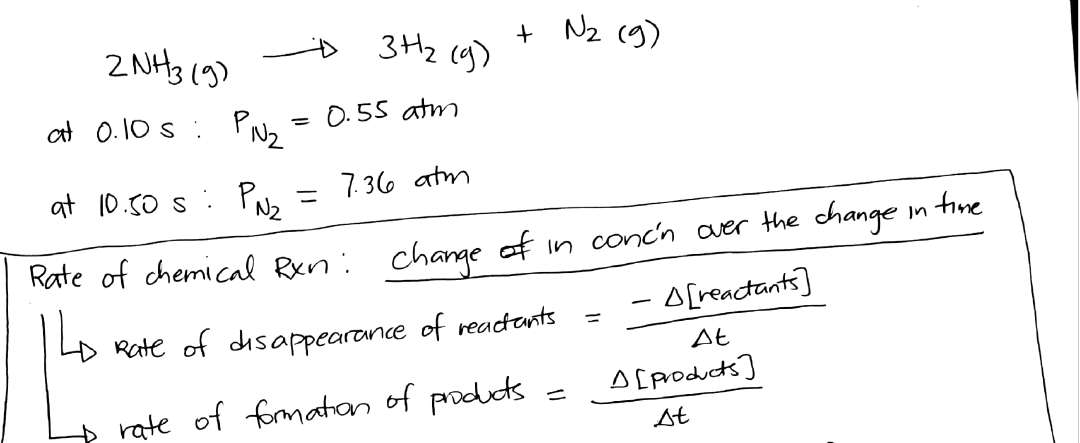 2NH₃(g) → 3H₂(g) + N₂(g)
at 0.10 s : P_N₂ = 0.55 atm
at 10.50 s : P_N₂ = 7.36 atm
Rate of chemical Rxn : change of in conc'n over the change in time
↳ Rate of disappearance of reactants = - Δ[reactants] / Δt
↳ rate of formation of products = Δ[products] / Δt